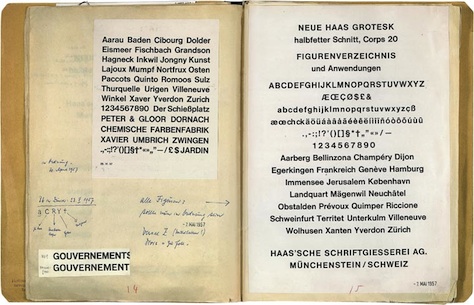 Aarau Baden Cibourg Dolder
Eismeer Fischbach Grandson
Hagneck Inkwil Jongny Kunst
Lajoux Mumpf Nortfrux Osten
Paccots Quinto Romoos Sulz
Thurquelle Urigen Villeneuve
Winkel Xaver Yverdon Zürich
1234567890 Der Schießplatz
PETER & GLOOR DORNACH
CHEMISCHE FARBENFABRIK
XAVIER UMBRICH ZWINGEN
JARDIN
alle Figuren
-1 MAI 1957
GOUVERNEMENTS
GOUVERNEMENT
14
NEUE HAAS GROTESK
halbfetter Schnitt, Corps 20
FIGURENVERZEICHNIS
und Anwendungen
ABCDEFGHIJKLMNOPQRSTUVWXYZ
ÆŒÇØ$£&
abcdefghijklmnopqrstuvwxyzß
1234567890
Aarberg Bellinzona Champéry Dijon
Egerkingen Frankreich Genève Hamburg
Immensee Jerusalem København
Landquart Mägenwil Neuchâtel
Obstalden Prévoux Quimper Riccione
Schweinfurt Territet Unterkulm Villeneuve
Wolhusen Xanten Yverdon Zürich
HAAS'SCHE SCHRIFTGIESSEREI AG.
MÜNCHENSTEIN/SCHWEIZ
15
-1 MAI 1957